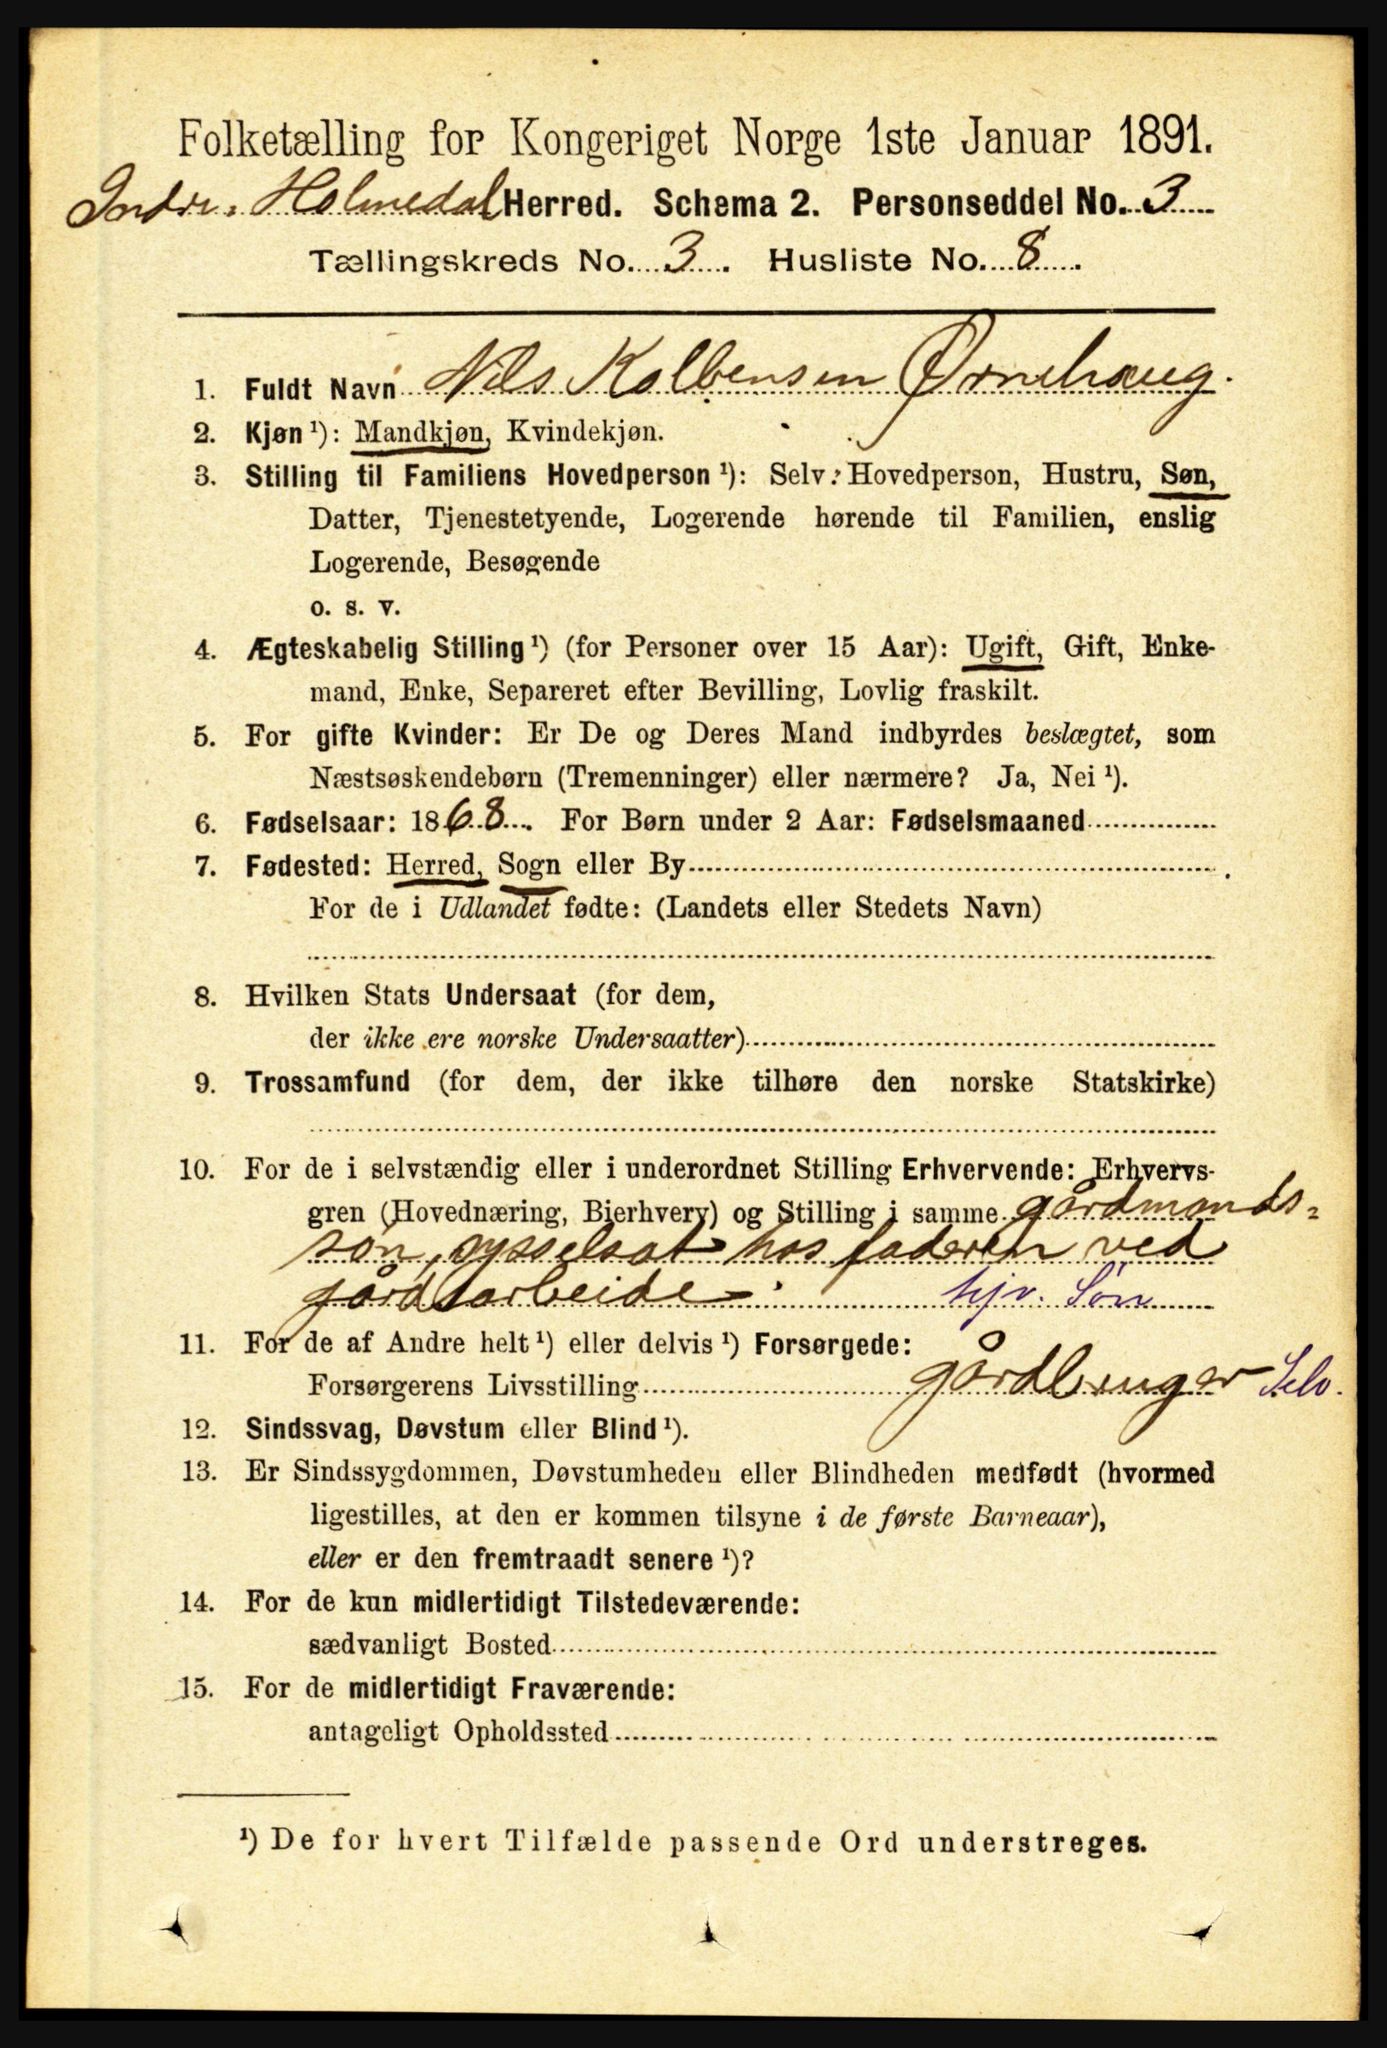 Folketælling for Kongeriget Norge 1ste Januar 1891.
Indre Holmedal Herred. Schema 2. Personseddel No. 3
Tællingskreds No. 3. Husliste No. 8.
1. Fuldt Navn Nils Kolbensen Ørnehaug.
2. Kjøn ¹): Mandkjøn, Kvindekjøn.
3. Stilling til Familiens Hovedperson ¹): Selv: Hovedperson, Hustru, Søn,
Datter, Tjenestetyende, Logerende hørende til Familien, enslig
Logerende, Besøgende
o. s. v.
4. Ægteskabelig Stilling ¹) (for Personer over 15 Aar): Ugift, Gift, Enke-
mand, Enke, Separeret efter Bevilling, Lovlig fraskilt.
5. For gifte Kvinder: Er De og Deres Mand indbyrdes beslægtet, som
Næstsøskendebørn (Tremenninger) eller nærmere? Ja, Nei ¹).
6. Fødselsaar: 1868. For Børn under 2 Aar: Fødselsmaaned
7. Fødested: Herred, Sogn eller By
For de i Udlandet fødte: (Landets eller Stedets Navn)
8. Hvilken Stats Undersaat (for dem,
der ikke ere norske Undersaatter)
9. Trossamfund (for dem, der ikke tilhøre den norske Statskirke)
10. For de i selvstændig eller i underordnet Stilling Erhvervende: Erhvervs-
gren (Hovednæring, Bierhverv) og Stilling i samme gårdmands-
søn, sysselsat hos faderen ved
gårdsarbeide. hjv. Søn
11. For de af Andre helt ¹) eller delvis ¹) Forsørgede:
Forsørgerens Livsstilling gårdbruger Selv.
12. Sindssvag, Døvstum eller Blind ¹).
13. Er Sindssygdommen, Døvstumheden eller Blindheden medfødt (hvormed
ligestilles, at den er kommen tilsyne i de første Barneaar),
eller er den fremtraadt senere ¹)?
14. For de kun midlertidigt Tilstedeværende:
sædvanligt Bosted
15. For de midlertidigt Fraværende:
antageligt Opholdssted
¹) De for hvert Tilfælde passende Ord understreges.